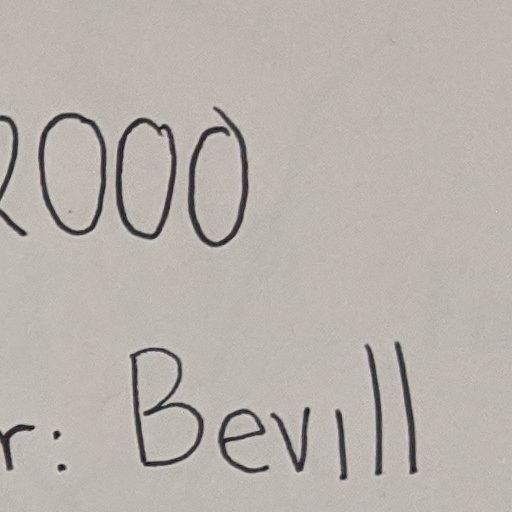 2000
r: Bevill